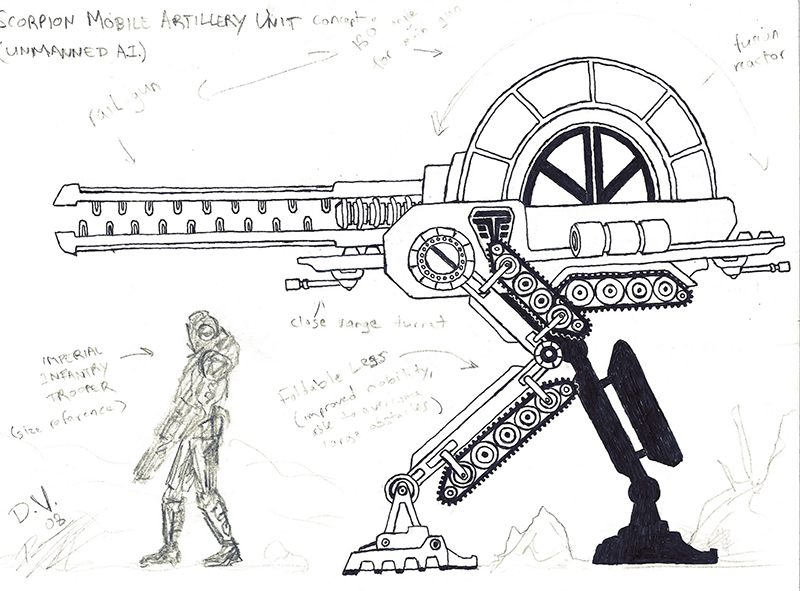 SCORPION MOBILE ARTILLERY UNIT concept
(UNMANNED A.I.)
for main gun
rail gun
fusion
reactor
close range turret
IMPERIAL
INFANTRY
TROOPER
(size reference)
Foldable Legs
(improved mobility,
able to overcome
large obstacles)
D.V.
08